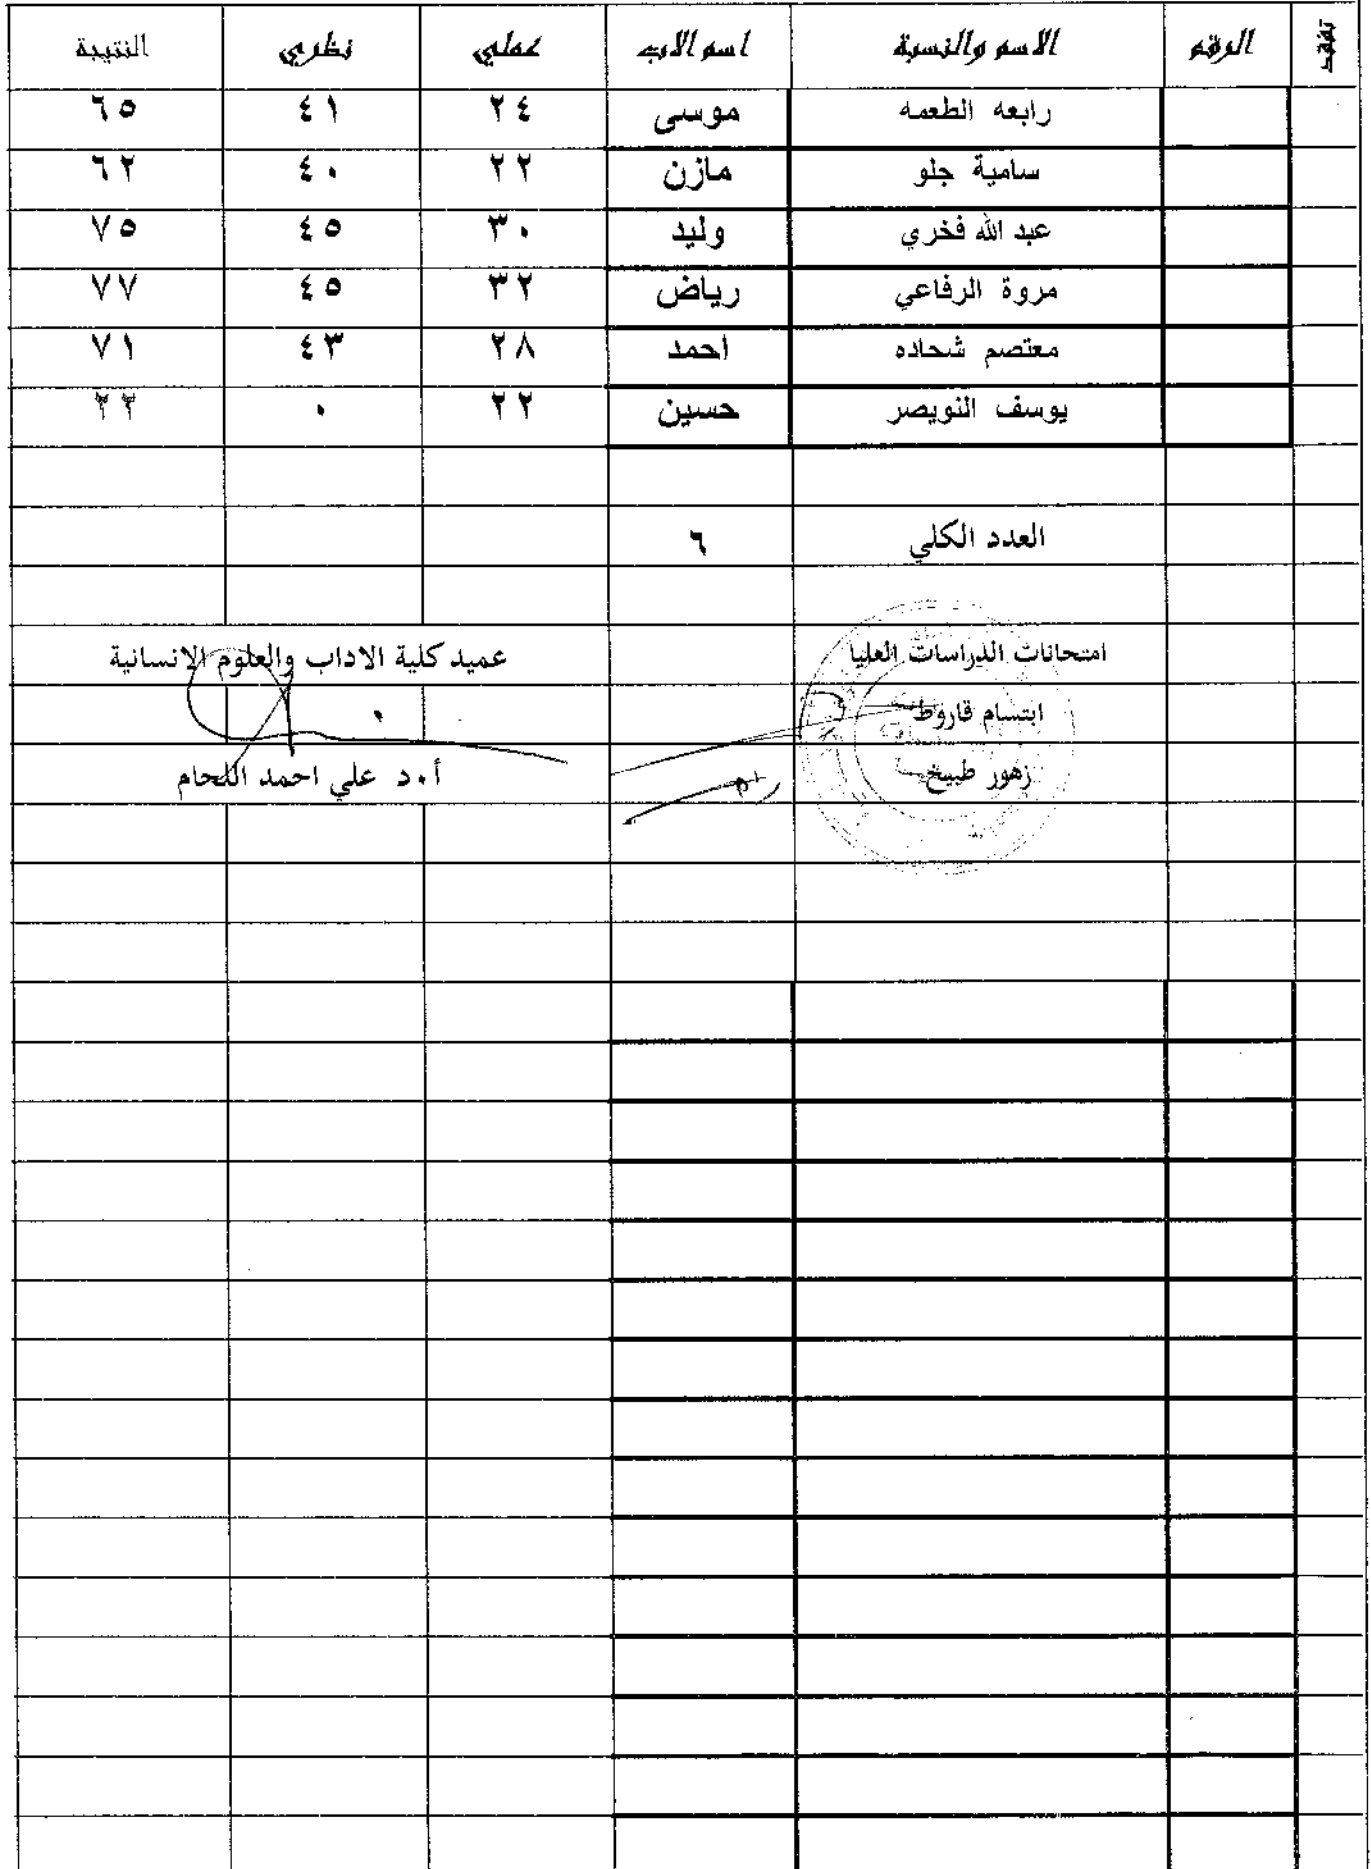 تفقد الرقم الاسم والنسبة اسم الاب عملي نظري النتيجة
رابعه الطعمه موسى ٢٤ ٤١ ٦٥
سامية جلو مازن ٢٢ ٤٠ ٦٢
عبد الله فخري وليد ٣٠ ٤٥ ٧٥
مروة الرفاعي رياض ٣٢ ٤٥ ٧٧
معتصم شحاده احمد ٢٨ ٤٣ ٧١
يوسف النويصر حسين ٢٢ ٠ ٢٢
العدد الكلي ٦
امتحانات الدراسات العليا عميد كلية الاداب والعلوم الانسانية
ابتسام قاروط
زهور طبيخ أ.د علي احمد اللحام